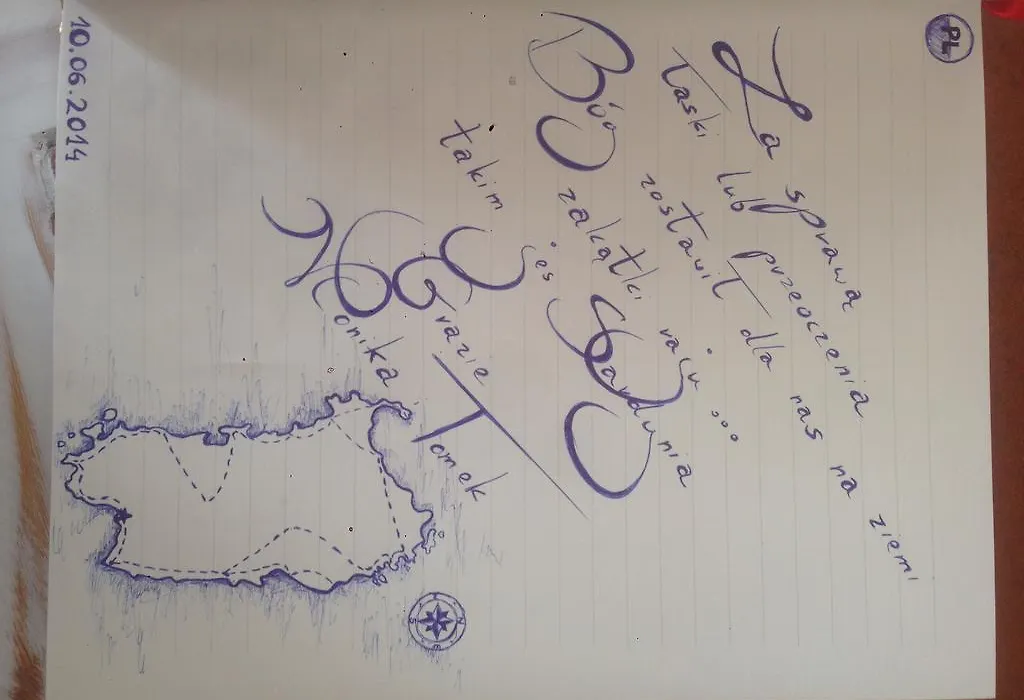 PL
Za sprawą
łaski lub przeoczenia
Bóg zostawił dla nas na ziemi
zakątki raju ...
takim jes Sardynia
Grazie
Monika / Tomek
10.06.2014
N
S